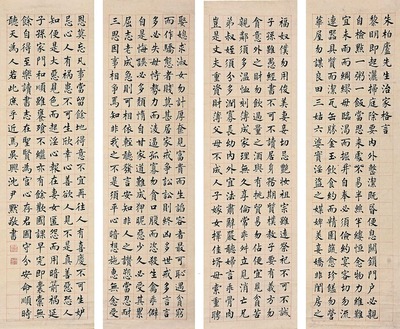 朱柏廬先生治家格言
黎明即起灑掃庭除要內外整潔既昏便息關鎖門戶必親
自檢點一粥一飯當思來處不易半絲半縷恒念物力維艱
宜未雨而綢繆毋臨渴而掘井自奉必須儉約宴客切勿流
連器具質而潔瓦缶勝金玉飲食約而精園蔬愈珍饈勿營
華屋勿謀良田三姑六婆實淫盜之媒婢美妾嬌非閨房之
福奴僕勿用俊美妻妾切忌豔妝祖宗雖遠祭祀不可不誠
子孫雖愚經書不可不讀居身務期質樸教子要有義方勿
貪意外之財勿飲過量之酒與肩挑貿易勿佔便宜見貧苦
親鄰須多溫恤刻薄成家理無久享倫常乖舛立見消亡兄
弟叔姪須分多潤寡長幼內外宜法肅辭嚴聽婦言乖骨肉
豈是丈夫重資財薄父母不成人子嫁女擇佳壻毋索重聘
娶媳求淑女勿計厚奩見富貴而生諂容者最可恥遇貧窮
而作驕態者賤莫甚居家戒爭訟訟則終凶處世戒多言言
多必失毋恃勢力而凌逼孤寡勿貪口腹而恣殺牲禽乖僻
自是悔誤必多頹惰自甘家道難成狎暱惡少久必受其累
屈志老成急則可相依輕聽發言安知非人之譖愬當忍耐
三思因事相爭焉知非我之不是須平心暗想施惠無念受
恩莫忘凡事當留餘地得意不宜再往人有喜慶不可生妒
忌心人有禍患不可生欣幸心善欲人見不是真善惡恐人
知便是大惡見色而起淫心報在妻女匿怨而用暗箭禍延
子孫家門和順雖饔飧不繼亦有餘歡國課早完即囊橐無
餘自得至樂讀書志在聖賢為官心存君國守分安命順時
聽天為人若此庶乎近焉 吳興沈尹默敬書